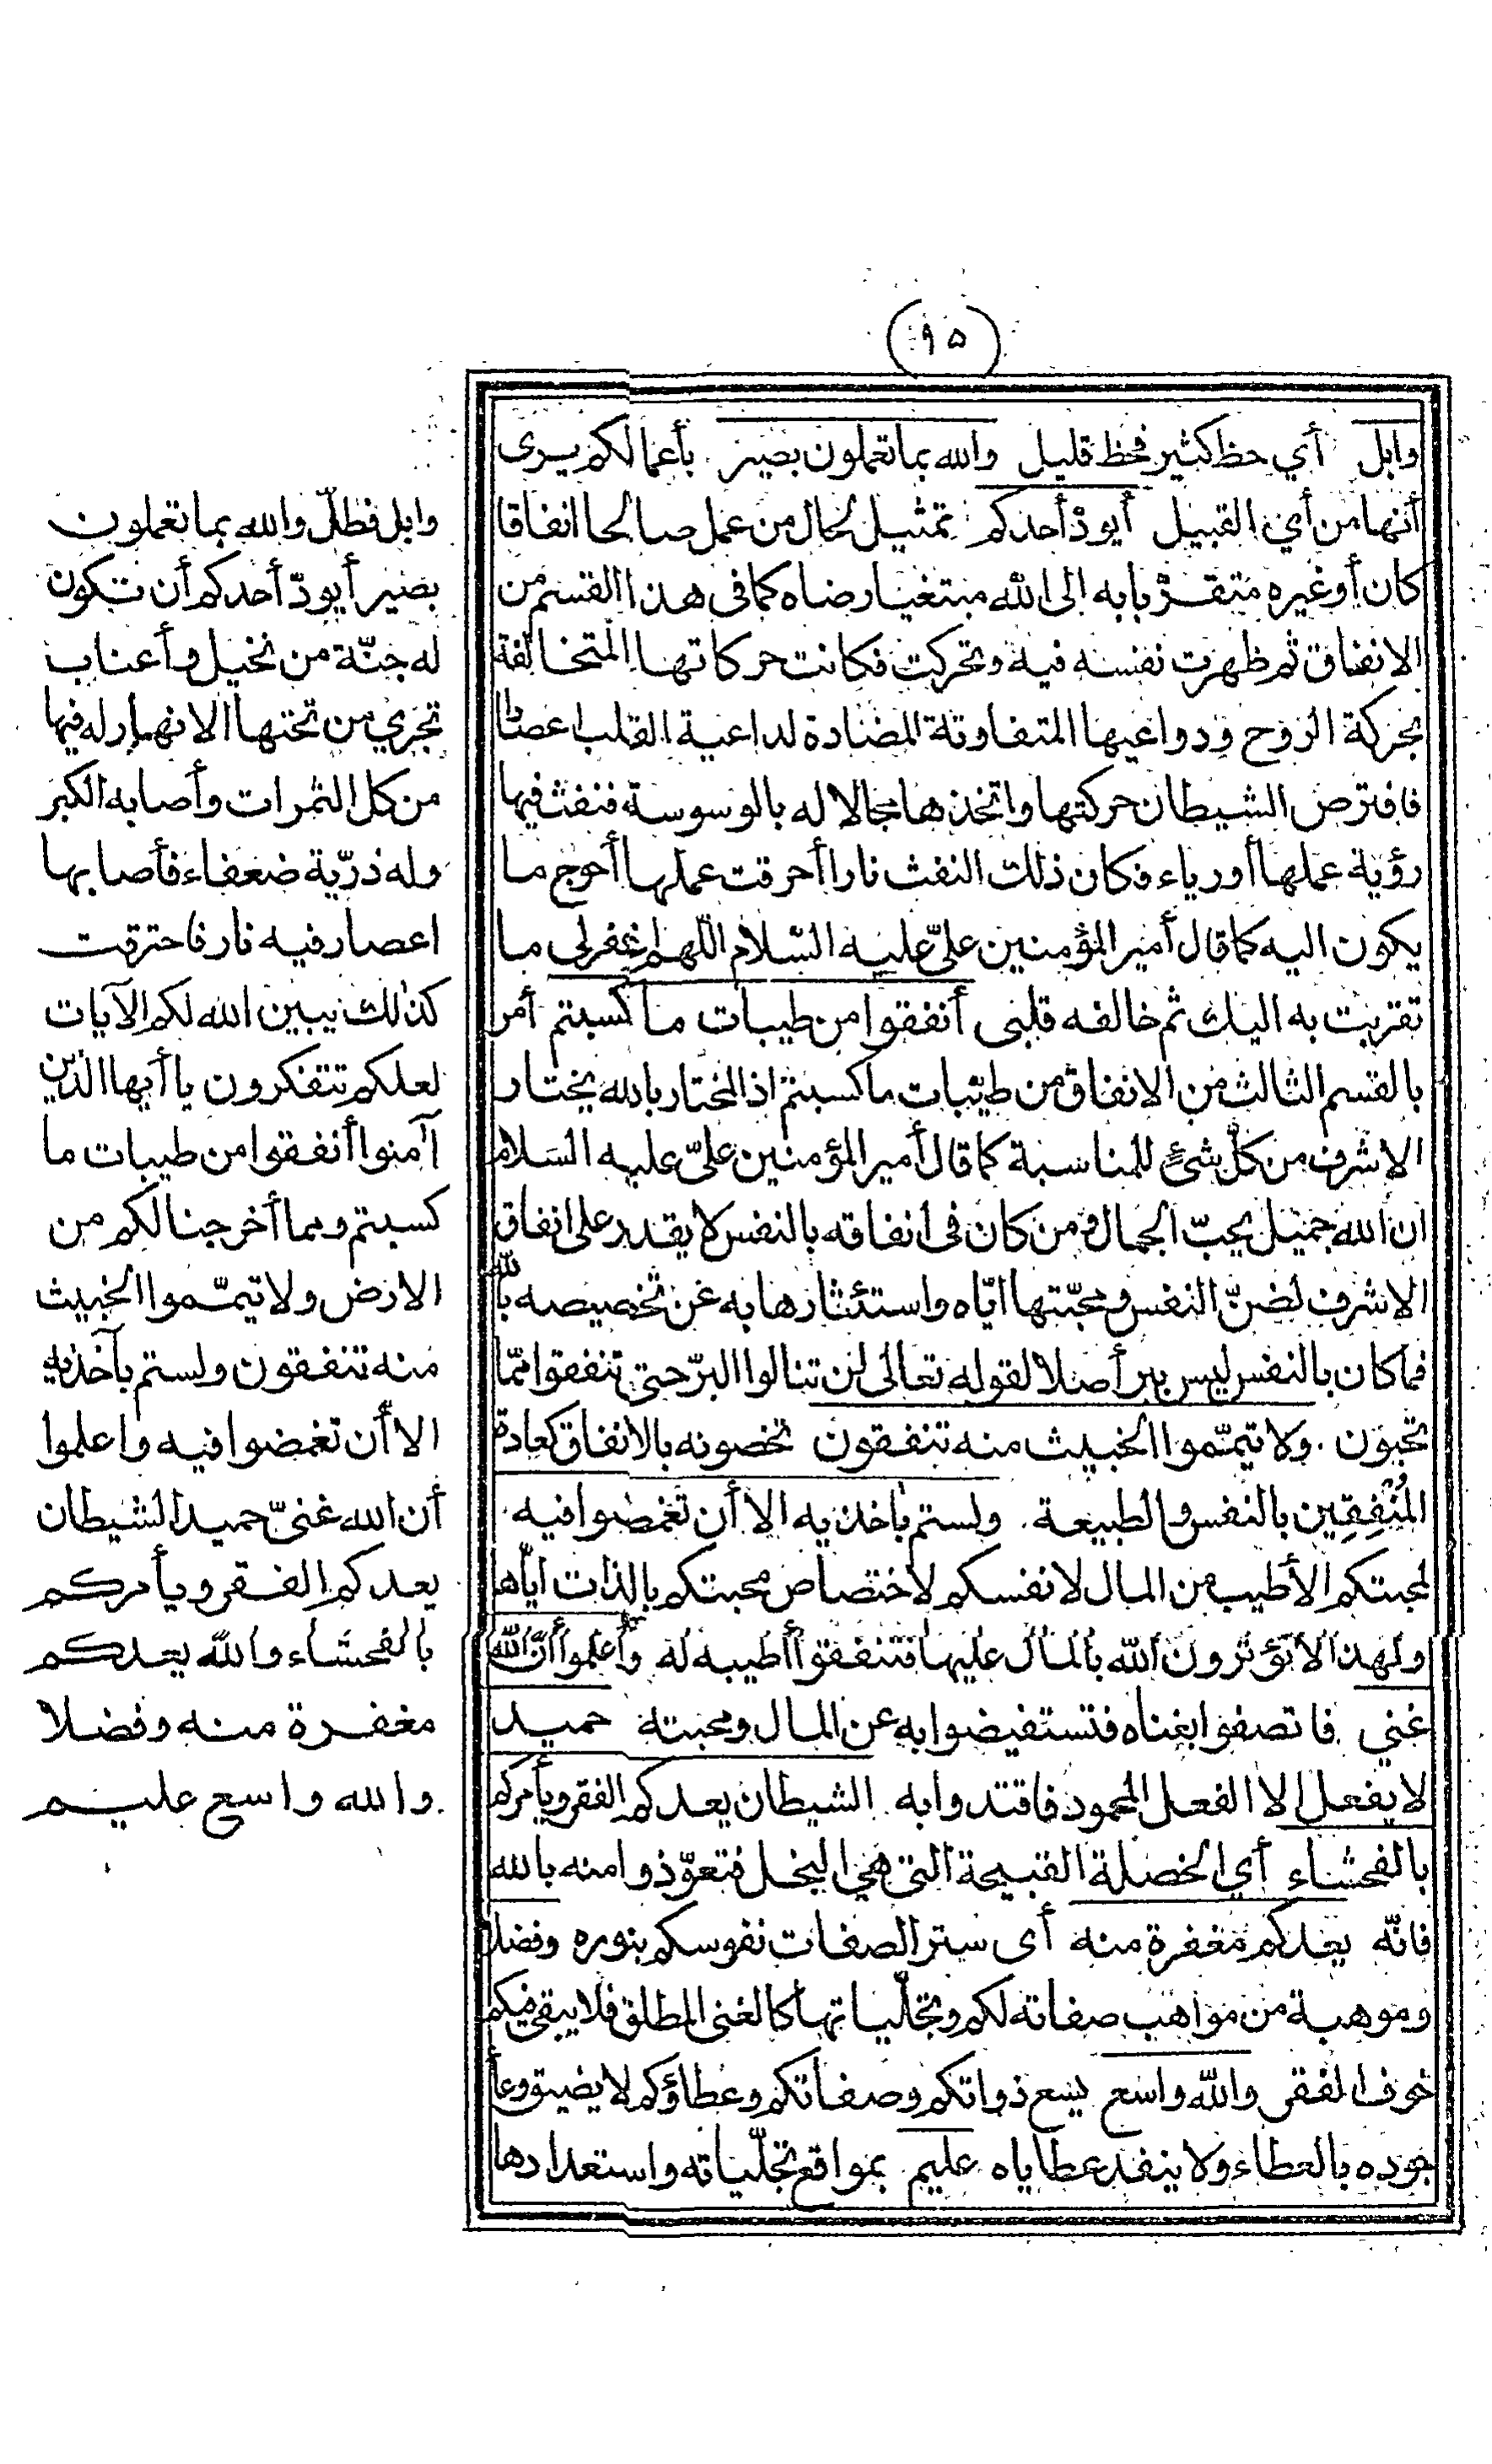 (٩٥)
وابل أي حظ كثير فحظ قليل والله بما تعملون بصير بأعمالكم يرى
أنها من أي القبيل أيود أحدكم تمثيل لحال من عمل صالحا انفاقا
كان أو غيره متقربا به الى الله مبتغيا رضاه كما في هذا القسم من
الانفاق ثم ظهرت نفسه فيه وتحركت فكانت حركاتها المتخالفة
بحركة الروح ودواعيها المتفاوتة المضادة لداعية القلب اعصارا
فافترص الشيطان حركتها واتخذها مجالا له بالوسوسة فنفث فيها
رؤية عملها أو رياء فكان ذلك النفث نارا أحرقت عملها أحوج ما
يكون اليه كما قال أمير المؤمنين عليّ عليه السّلام اللّهم اغفر لي ما
تقربت به اليك ثم خالفه قلبي أنفقوا من طيبات ما كسبتم أمر
بالقسم الثالث من الانفاق من طيّبات ما كسبتم اذ المختار بالله يختار
الاشرف من كلّ شئ للمناسبة كما قال أمير المؤمنين عليّ عليه السلام
ان الله جميل يحبّ الجمال ومن كان في انفاقه بالنفس لا يقدر على انفاق
الاشرف لضنّ النفس ومحبّتها ايّاه واستئثارها به عن تخصيصه بالله
فما كان بالنفس ليس ببر أصلا لقوله تعالى لن تنالوا البرّ حتى تنفقوا ممّا
تحبون . ولا تيمّموا الخبيث منه تنفقون تخصونه بالانفاق كعادة
المُنْفِقِين بالنفس والطبيعة . ولستم بآخذيه الا أن تغمضوا فيه .
لمحبتكم الأطيب من المال لانفسكم لاختصاص محبتكم بالذات ايّاها
ولهذا لا تؤثرون الله بالمال عليها فتنفقوا أطيبه له واعلموا أنّ الله
غني فاتصفوا بغناه فتستفيضوا به عن المال ومحبته حميد
لا يفعل الا الفعل المحمود فاقتدوا به الشيطان يعدكم الفقر ويأمركم
بالفحشاء أي الخصلة القبيحة التي هي البخل فتعوّذوا منه بالله
فانّه يعدكم مغفرة منه أى ستر الصفات نفوسكم بنوره وفضلا
وموهبة من مواهب صفاته لكم وتجلّياتها كالغنى المطلق فلا يبقى فيكم
خوف الفقر والله واسع يسع ذواتكم وصفاتكم وعطاؤكم لا يضيق وعاء
جوده بالعطاء ولا ينفد عطاياه عليم بمواقع تجلّياته واستعدادها
وابل فطلّ والله بما تعملون
بصير أيودّ أحدكم أن تكون
له جنّة من نخيل وأعناب
تجري من تحتها الانهار له فيها
من كل الثمرات وأصابه الكبر
وله ذرّية ضعفاء فأصابها
اعصار فيه نار فاحترقت
كذلك يبين الله لكم الآيات
لعلكم تتفكرون يا أيها الذين
آمنوا أنفقوا من طيبات ما
كسبتم ومما أخرجنا لكم من
الارض ولا تيمّموا الخبيث
منه تنفقون ولستم بآخذيه
الا أن تغمضوا فيه واعلموا
أن الله غنيّ حميد الشيطان
يعدكم الفقر ويأمركم
بالفحشاء والله يعدكم
مغفرة منه وفضلا
والله واسع عليم